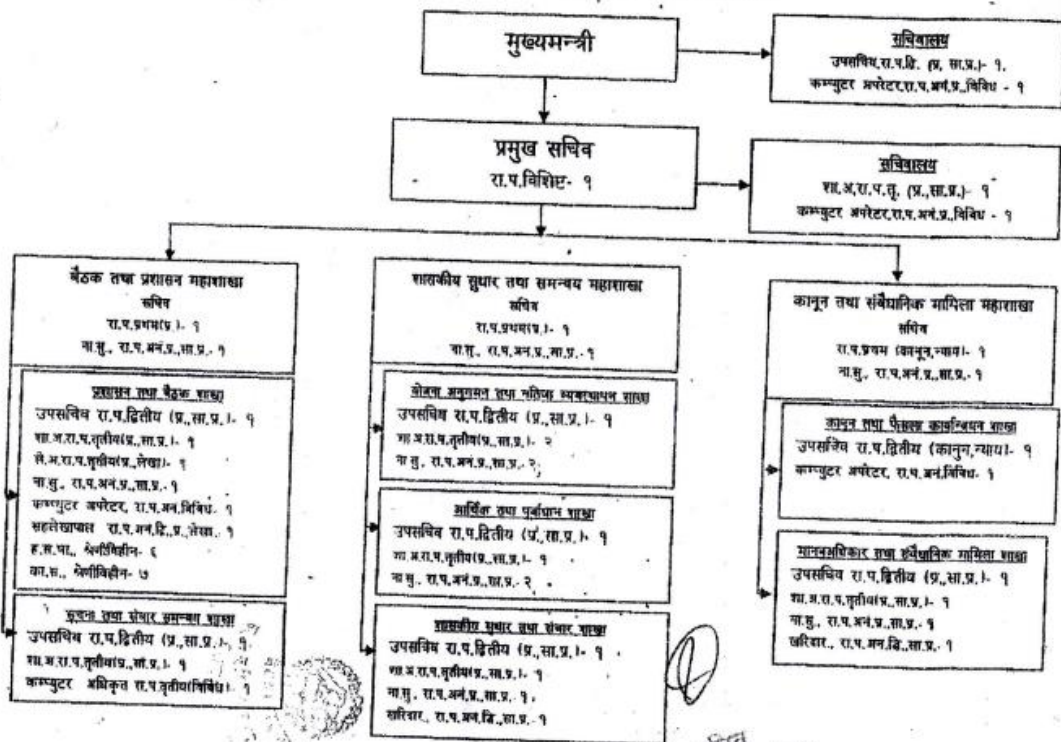 मुख्यमन्त्री
सचिवालय
उपसचिव,रा.प.द्वि. (प्र, सा.प्र.)- १.
कम्प्युटर अपरेटर,रा.प.अनं.प्र.,विविध - १
प्रमुख सचिव
रा.प.विशिष्ट- १
सचिवालय
शा.अ,रा.प.तृ. (प्र.,सा.प्र.)- १
कम्प्युटर अपरेटर,रा.प.अनं.प्र.,विविध - १
बैठक तथा प्रशासन महाशाखा
सचिव
रा.प.प्रथम(प्र.)- १
ना.सु., रा.प.अनं.प्र.,सा.प्र.- १
प्रशासन तथा बैठक शाखा
उपसचिव रा.प.द्वितीय (प्र.,सा.प्र.)- १
शा.अ.रा.प.तृतीय(प्र.,सा.प्र.)- १
ले.अ.रा.प.तृतीय(प्र.,लेखा)- १
ना.सु., रा.प.अनं.प्र.,सा.प्र.- १
कम्प्युटर अपरेटर, रा.प.अनं.विविध- १
सहलेखापाल रा.प.अनं.द्वि.,प्र.,लेखा.- १
ह.स.चा., श्रेणीविहीन- ६
का.स., श्रेणीविहीन- ७
सूचना तथा संचार समन्वय शाखा
उपसचिव रा.प.द्वितीय (प्र.,सा.प्र.)- १
शा.अ.रा.प.तृतीय(प्र.,सा.प्र.)- १
कम्प्युटर अधिकृत रा.प.तृतीय(विविध)- १
शासकीय सुधार तथा समन्वय महाशाखा
सचिव
रा.प.प्रथम(प्र.)- १
ना.सु., रा.प.अनं.प्र.,सा.प्र.- १
योजना अनुगमन तथा नतिजा व्यवस्थापन शाखा
उपसचिव रा.प.द्वितीय (प्र.,सा.प्र.)- १
शा.अ.रा.प.तृतीय(प्र.,सा.प्र.)- २
ना.सु., रा.प.अनं.प्र.,सा.प्र.- २
आर्थिक तथा पूर्वाधार शाखा
उपसचिव रा.प.द्वितीय (प्र.,सा.प्र.)- १
शा.अ.रा.प.तृतीय(प्र.,सा.प्र.)- १
ना.सु., रा.प.अनं.प्र.,सा.प्र.- २
शासकीय सुधार तथा संचार शाखा
उपसचिव रा.प.द्वितीय (प्र.,सा.प्र.)- १
शा.अ.रा.प.तृतीय(प्र.,सा.प्र.)- १
ना.सु., रा.प.अनं.प्र.,सा.प्र.- १
खरिदार., रा.प.अनं.द्वि.,सा.प्र.- १
कानून तथा संबैधानिक मामिला महाशाखा
सचिव
रा.प.प्रथम (कानून,न्याय)- १
ना.सु., रा.प.अनं.प्र.,सा.प्र.- १
कानून तथा फैसला कार्यान्वयन शाखा
उपसचिव रा.प.द्वितीय (कानुन,न्याय)- १
कम्प्युटर अपरेटर, रा.प.अनं.विविध- १
मानवअधिकार तथा संबैधानिक मामिला शाखा
उपसचिव रा.प.द्वितीय (प्र.,सा.प्र.)- १
शा.अ.रा.प.तृतीय(प्र.,सा.प्र.)- १
ना.सु., रा.प.अनं.प्र.,सा.प्र.- १
खरिदार., रा.प.अनं.द्वि.,सा.प्र.- १